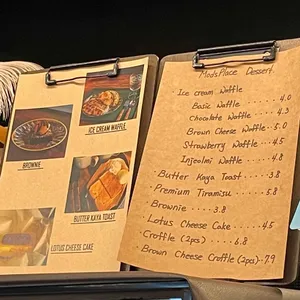 ICE CREAM WAFFLE
BROWNIE
BUTTER KAYA TOAST
LOTUS CHEESE CAKE
ModsPlace Dessert
Ice cream Waffle
Basic Waffle ..... 4.0
Chocolate Waffle .... 4.3
Brown Cheese Waffle .. 5.0
Strawberry Waffle .... 4.5
Injeolmi Waffle .... 4.8
· Butter Kaya Toast .... 3.8
· Premium Tiramisu .... 5.8
· Brownie .... 3.8
· Lotus Cheese Cake .... 4.5
· Croffle (2pcs) .... 6.8
· Brown Cheese Croffle (2pcs).. 7.9